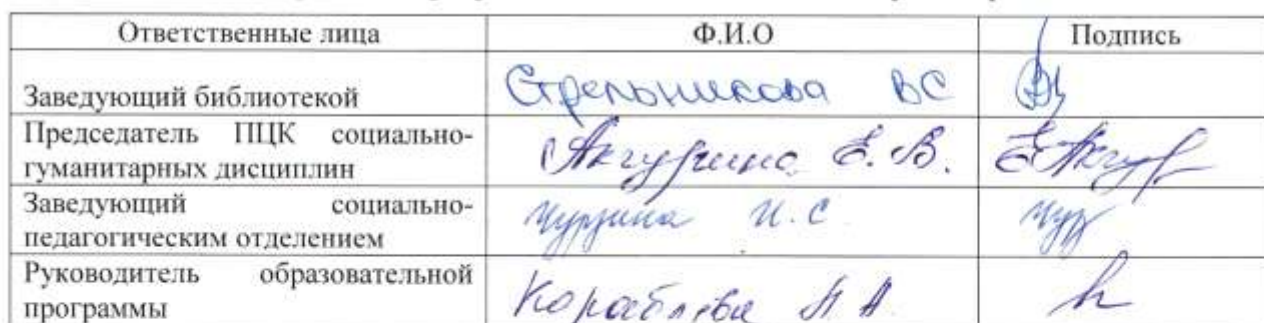 Ответственные лица Ф.И.О Подпись
Заведующий библиотекой Стрельникова ВС
Председатель ПЦК социально-
гуманитарных дисциплин
Е.В.
Заведующий социально-
педагогическим отделением
И.С.
Руководитель образовательной
программы
Кораблева